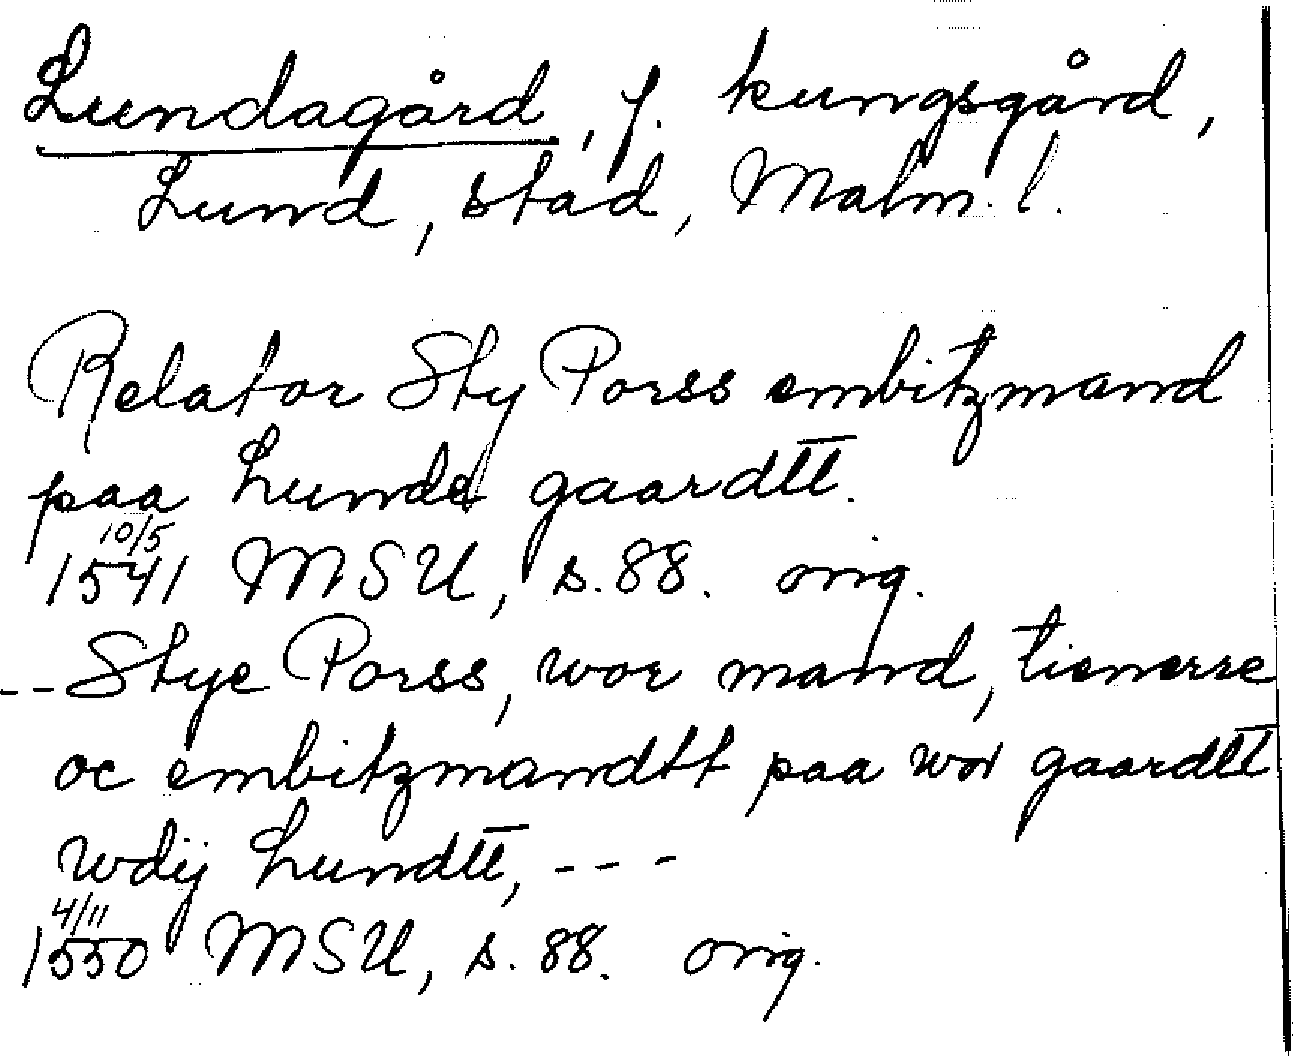 Lundagård, f. kungsgård,
Lund, stad, Malm. l.
Relator Sty Porss embitzmand
paa Lunde gaardtt.
10/5
1541 MSU, s. 88. orig.
-- Stye Porss, wor mand, tienerre
oc embitzmandtt paa wor gaardtt
wdij Lundtt, ---
4/11
1550 MSU, s. 88. orig.